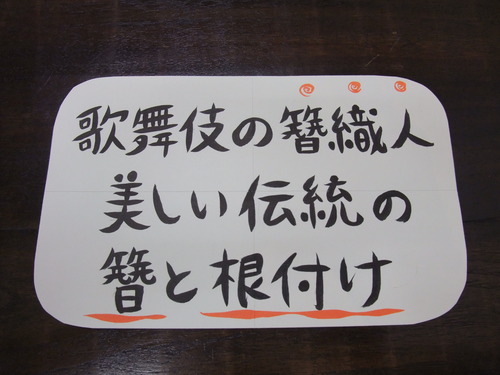 歌舞伎の簪織人
美しい伝統の
簪と根付け